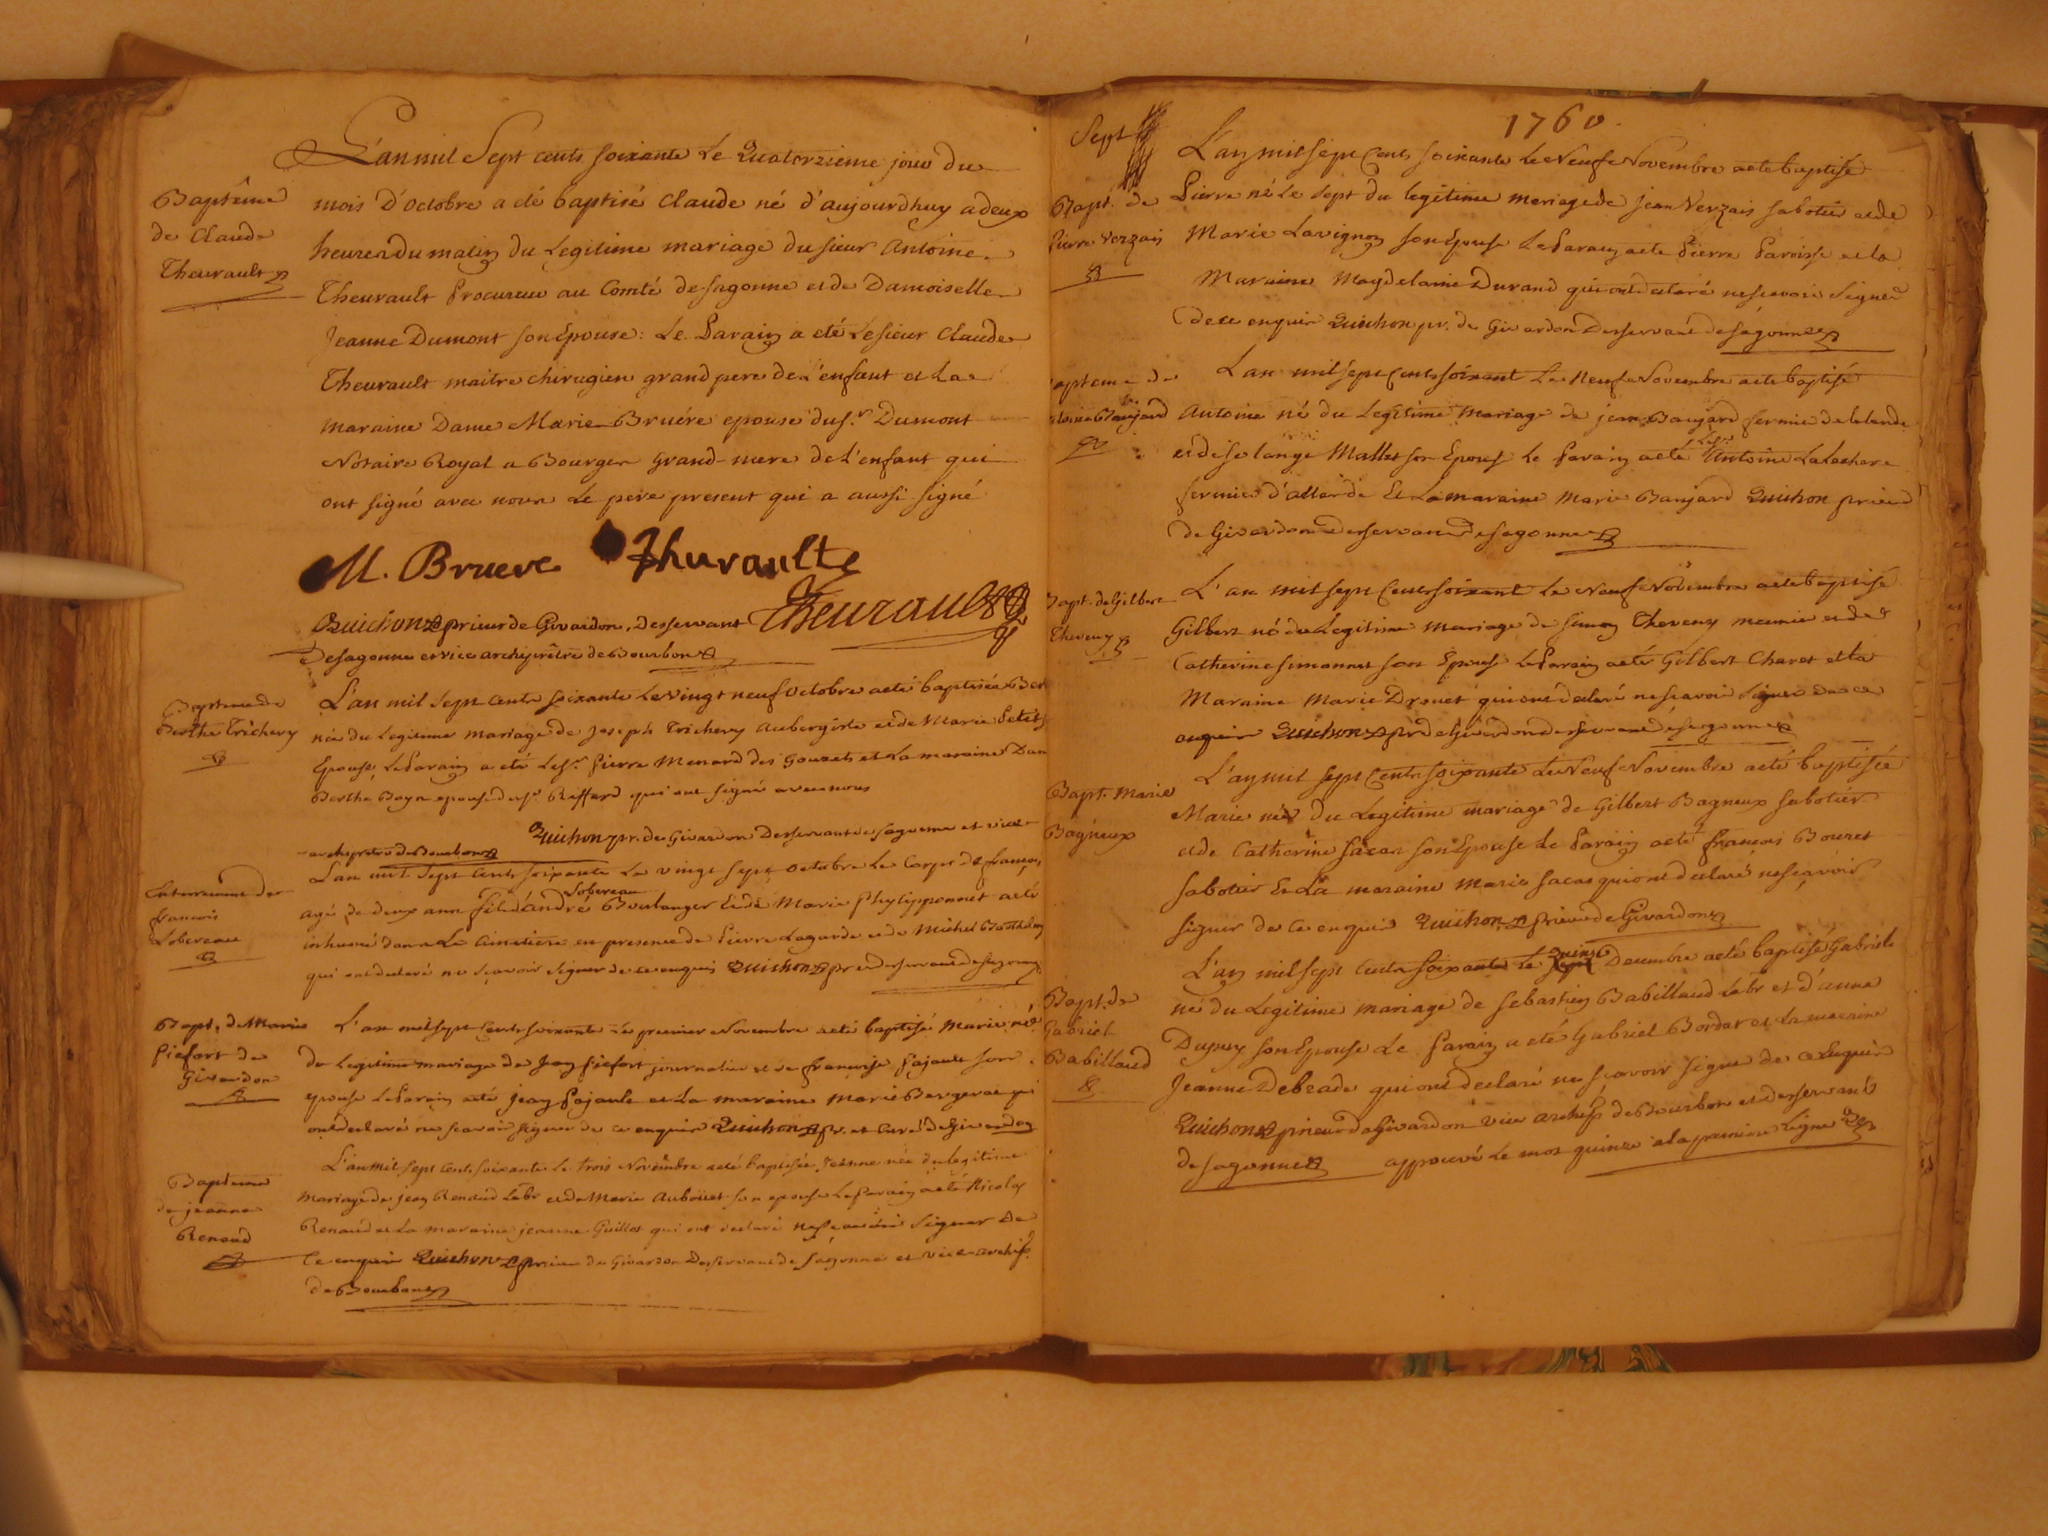 L'an mil Sept cents soixante Le Quatorzieme jour du
Baptême
de Claude
Theurault
mois d'octobre a eté baptisé Claude né d'aujourdhuy a deux
heures du matin du Legitime mariage du sieur Antoine
Theurault Procureur au Comté de Sagonne et de Damoiselle
Jeanne Dumont son Epouse: Le Parain a eté Le sieur Claude
Theurault maitre chirugien grand pere de L'enfant et La
maraine Dame Marie Bruére epouse du Sr. Dumont
Notaire Royal a Bourges grand-mere de L'enfant qui
ont signé avec nous Le pere present qui a aussi signé
M. Bruere Thuraulte
Theurault
Quichon prieur de Givardon, Desservant
de Sagonne et vice archiprêtre de Bourbon
Bapteme de
Berthe Trichery
L'an mil Sept cents soixante Le vingt neuf Octobre a eté baptisée Ber
née du Legitime mariage de Joseph Trichery Aubergiste et de Marie Petit
Epouse, Le Parain a eté Le Sr. Pierre Menard des Gouzets et La maraine Dam
Berthe Boyn epouse du Sr. Riffard qui ont signé avec nous
Quichon pr. de Givardon Desservant de Sagonne et vice
archiprêtre de Bourbon
Enterrement de
francois
Lobereau
L'an mil Sept cents soixante Le vingt sept octobre Le Corps de françois
Lobereau
agé de deux ans fils d'andré Boulanger et de Marie Phylipponnet a eté
inhumé dans Le Cimetiere en presence de Pierre Lagarde et de Michel Barthelemy
qui ont declaré ne sçavoir signer de ce enquis Quichon pr desservant de Sagonne
Bapt. de Marie
Piefort de
Givardon
L'an mil sept Cents soixante Le premier Novembre a eté baptisé Marie née
du Legitime mariage de Jean Piefort journalier et de francoise Pajault son
epouse Le Parain a eté jean Pajault et La maraine Marie Bergerat qui
ont declaré ne scavoir signer de ce enquis Quichon pr. et Curé de Givardon
Bapteme
de jeanne
Renaud
L'an mil sept cent soixante Le trois Novembre a eté baptisée Jeanne née du legitime
mariage de jean Renaud Labr et de Marie Auboüet son epouse Le Parain a eté Nicolas
Renaud et La maraine jeanne Guillot qui ont declaré ne sçavoir Signer De
Ce enquis Quichon prieur de Givardon Desservant de Sagonne et vice-archip.
de Bourbon
1760.
Sept
Bapt. de
Pierre Verzais
L'an mil sept Cents soixante Le Neuf Novembre a eté baptisé
Pierre né Le sept du legitime mariage de jean Verzais sabotier et de
Marie Lavignon son Epouse Le Parain a eté Pierre Paroisse et la
Maraine Magdelaine Durand qui ont declaré ne scavoir Signer
de ce enquis Quichon pr. de Givardon Desservant de Sagonne
apteme de
Baujard
L'an mil sept Cents soixant Le Neuf Novembre a eté baptisé
Antoine né du Legitime Mariage de jean Baujard fermier de lalande
et de solange Mallet son Epouse Le Parain a eté Antoine Lalechere
fermier d'allarde Et La maraine Marie Baujard Quichon prieur
de Givardon Desservant de Sagonne
Bapt. de Gilbert
Theveny
L'an mil sept Cents soixant Le Neuf Novembre a eté baptisé
Gilbert né du Legitime mariage de simon Theveny meunier et de
Catherine simonnet son Epouse Le Parain a eté Gilbert Charet et la
Maraine Marie Drouet qui ont declaré ne scavoir signer de ce
enquis Quichon pr de Givardon desservant de Sagonne
Bapt. Marie
Bagneux
L'an mil sept Cents soixante Le Neuf Novembre a eté baptisée
Marie née du Legitime mariage de Gilbert Bagneux sabotier
et de Catherine Sacas son Epouse Le Parain a eté francois Bouret
sabotier Et La maraine Marie Sacas qui ont declaré ne sçavoir
signer de ce enquis Quichon prieur de Givardon
Bapt. de
Gabriel
Babillaud
quinze
L'an mil sept Cents soixante Le Decembre a eté baptisé Gabriel
né du Legitime mariage de Sebastien Babillaud Labr et d'anne
Dupuy son Epouse Le Parain a eté Gabriel Bordat et La maraine
Jeanne Debrade qui ont declaré ne sçavoir signe de ce Enquis
Quichon prieur de Givardon vice archip de Bourbon et desservant
de Sagonne approuvé Le mot quinze a la premiere Ligne